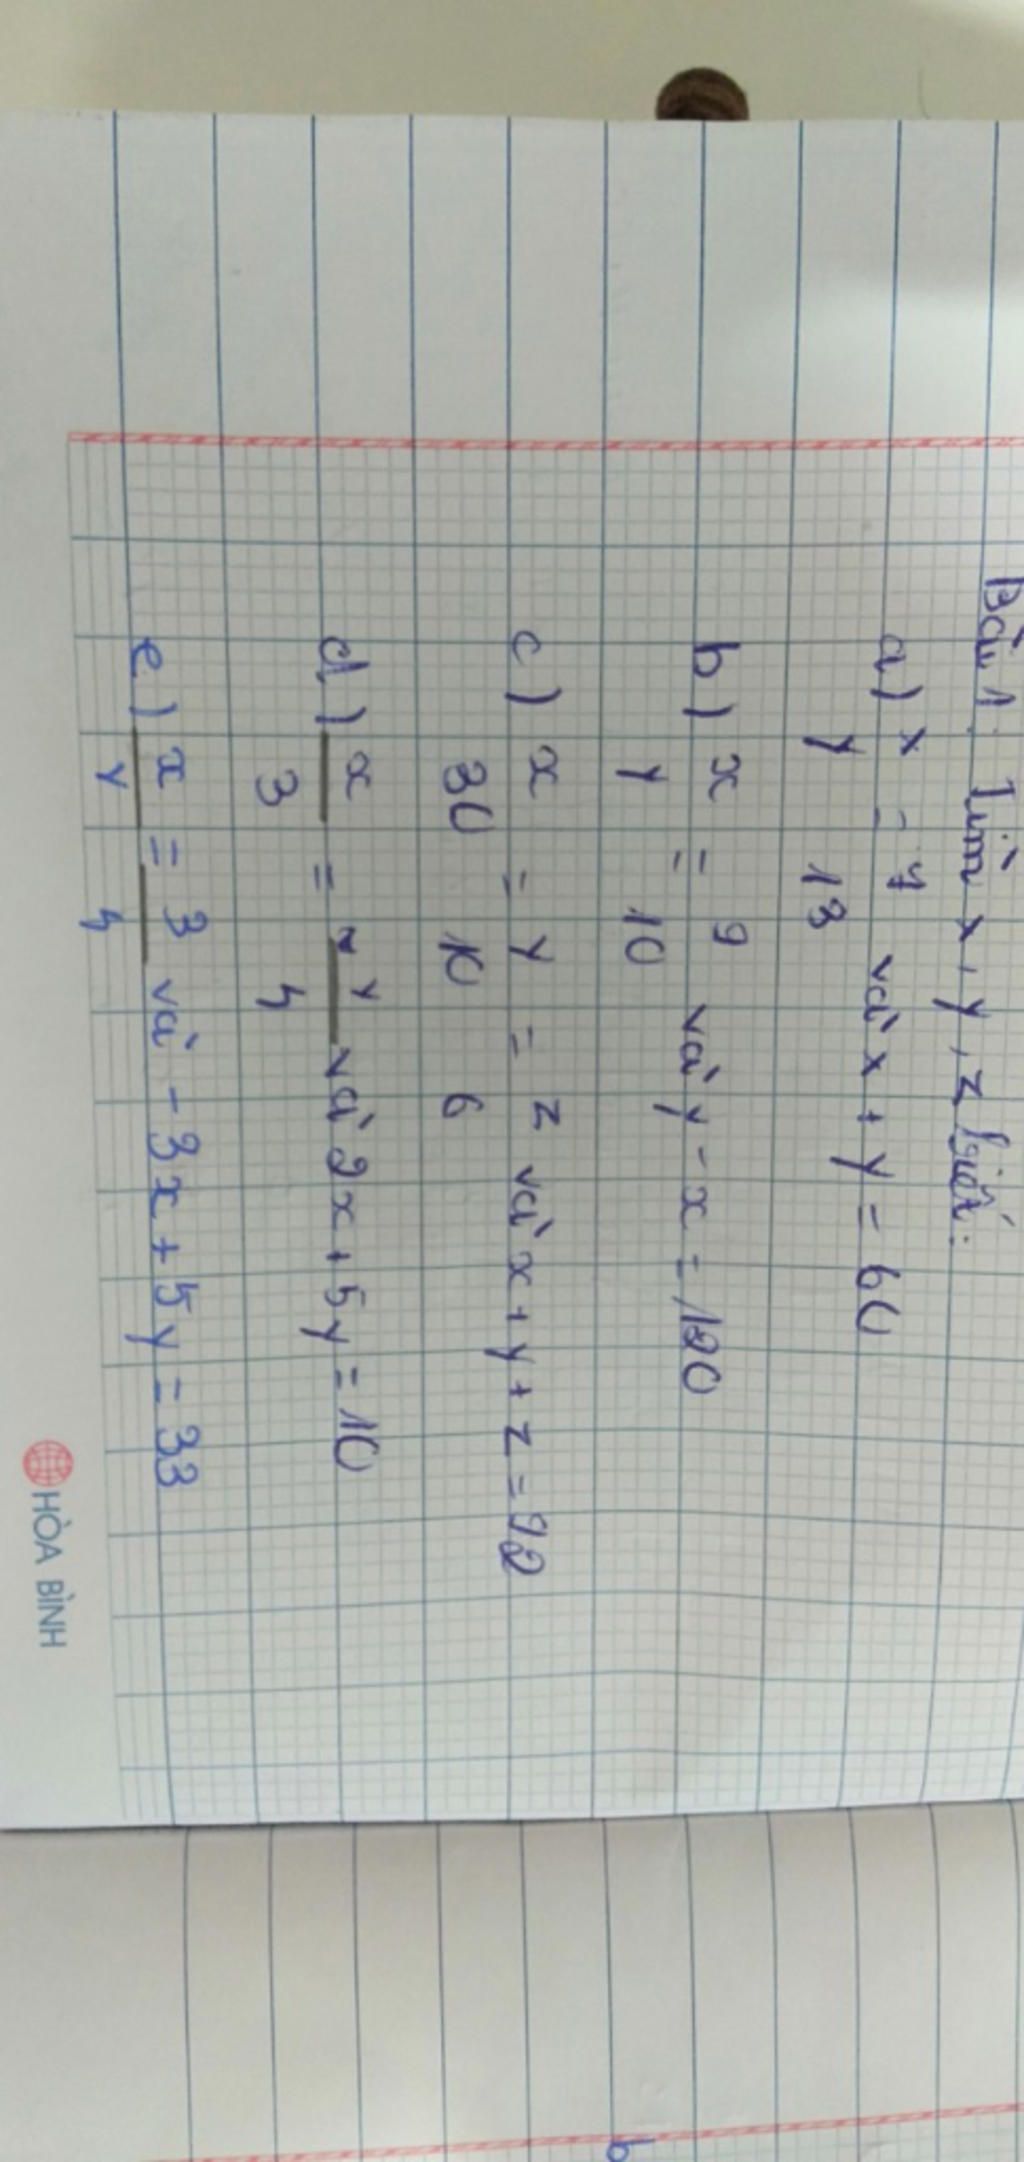 Bài 1: Tìm x, y, z biết:
a) x/y = 7/13 và x + y = 60
b) x/y = 9/10 và y - x = 120
c) x/30 = y/10 = z/6 và x + y + z = 92
d) x/3 = y/4 và 2x + 5y = 10
e) x/y = 3/4 và - 3x + 5y = 33
HÒA BÌNH
b